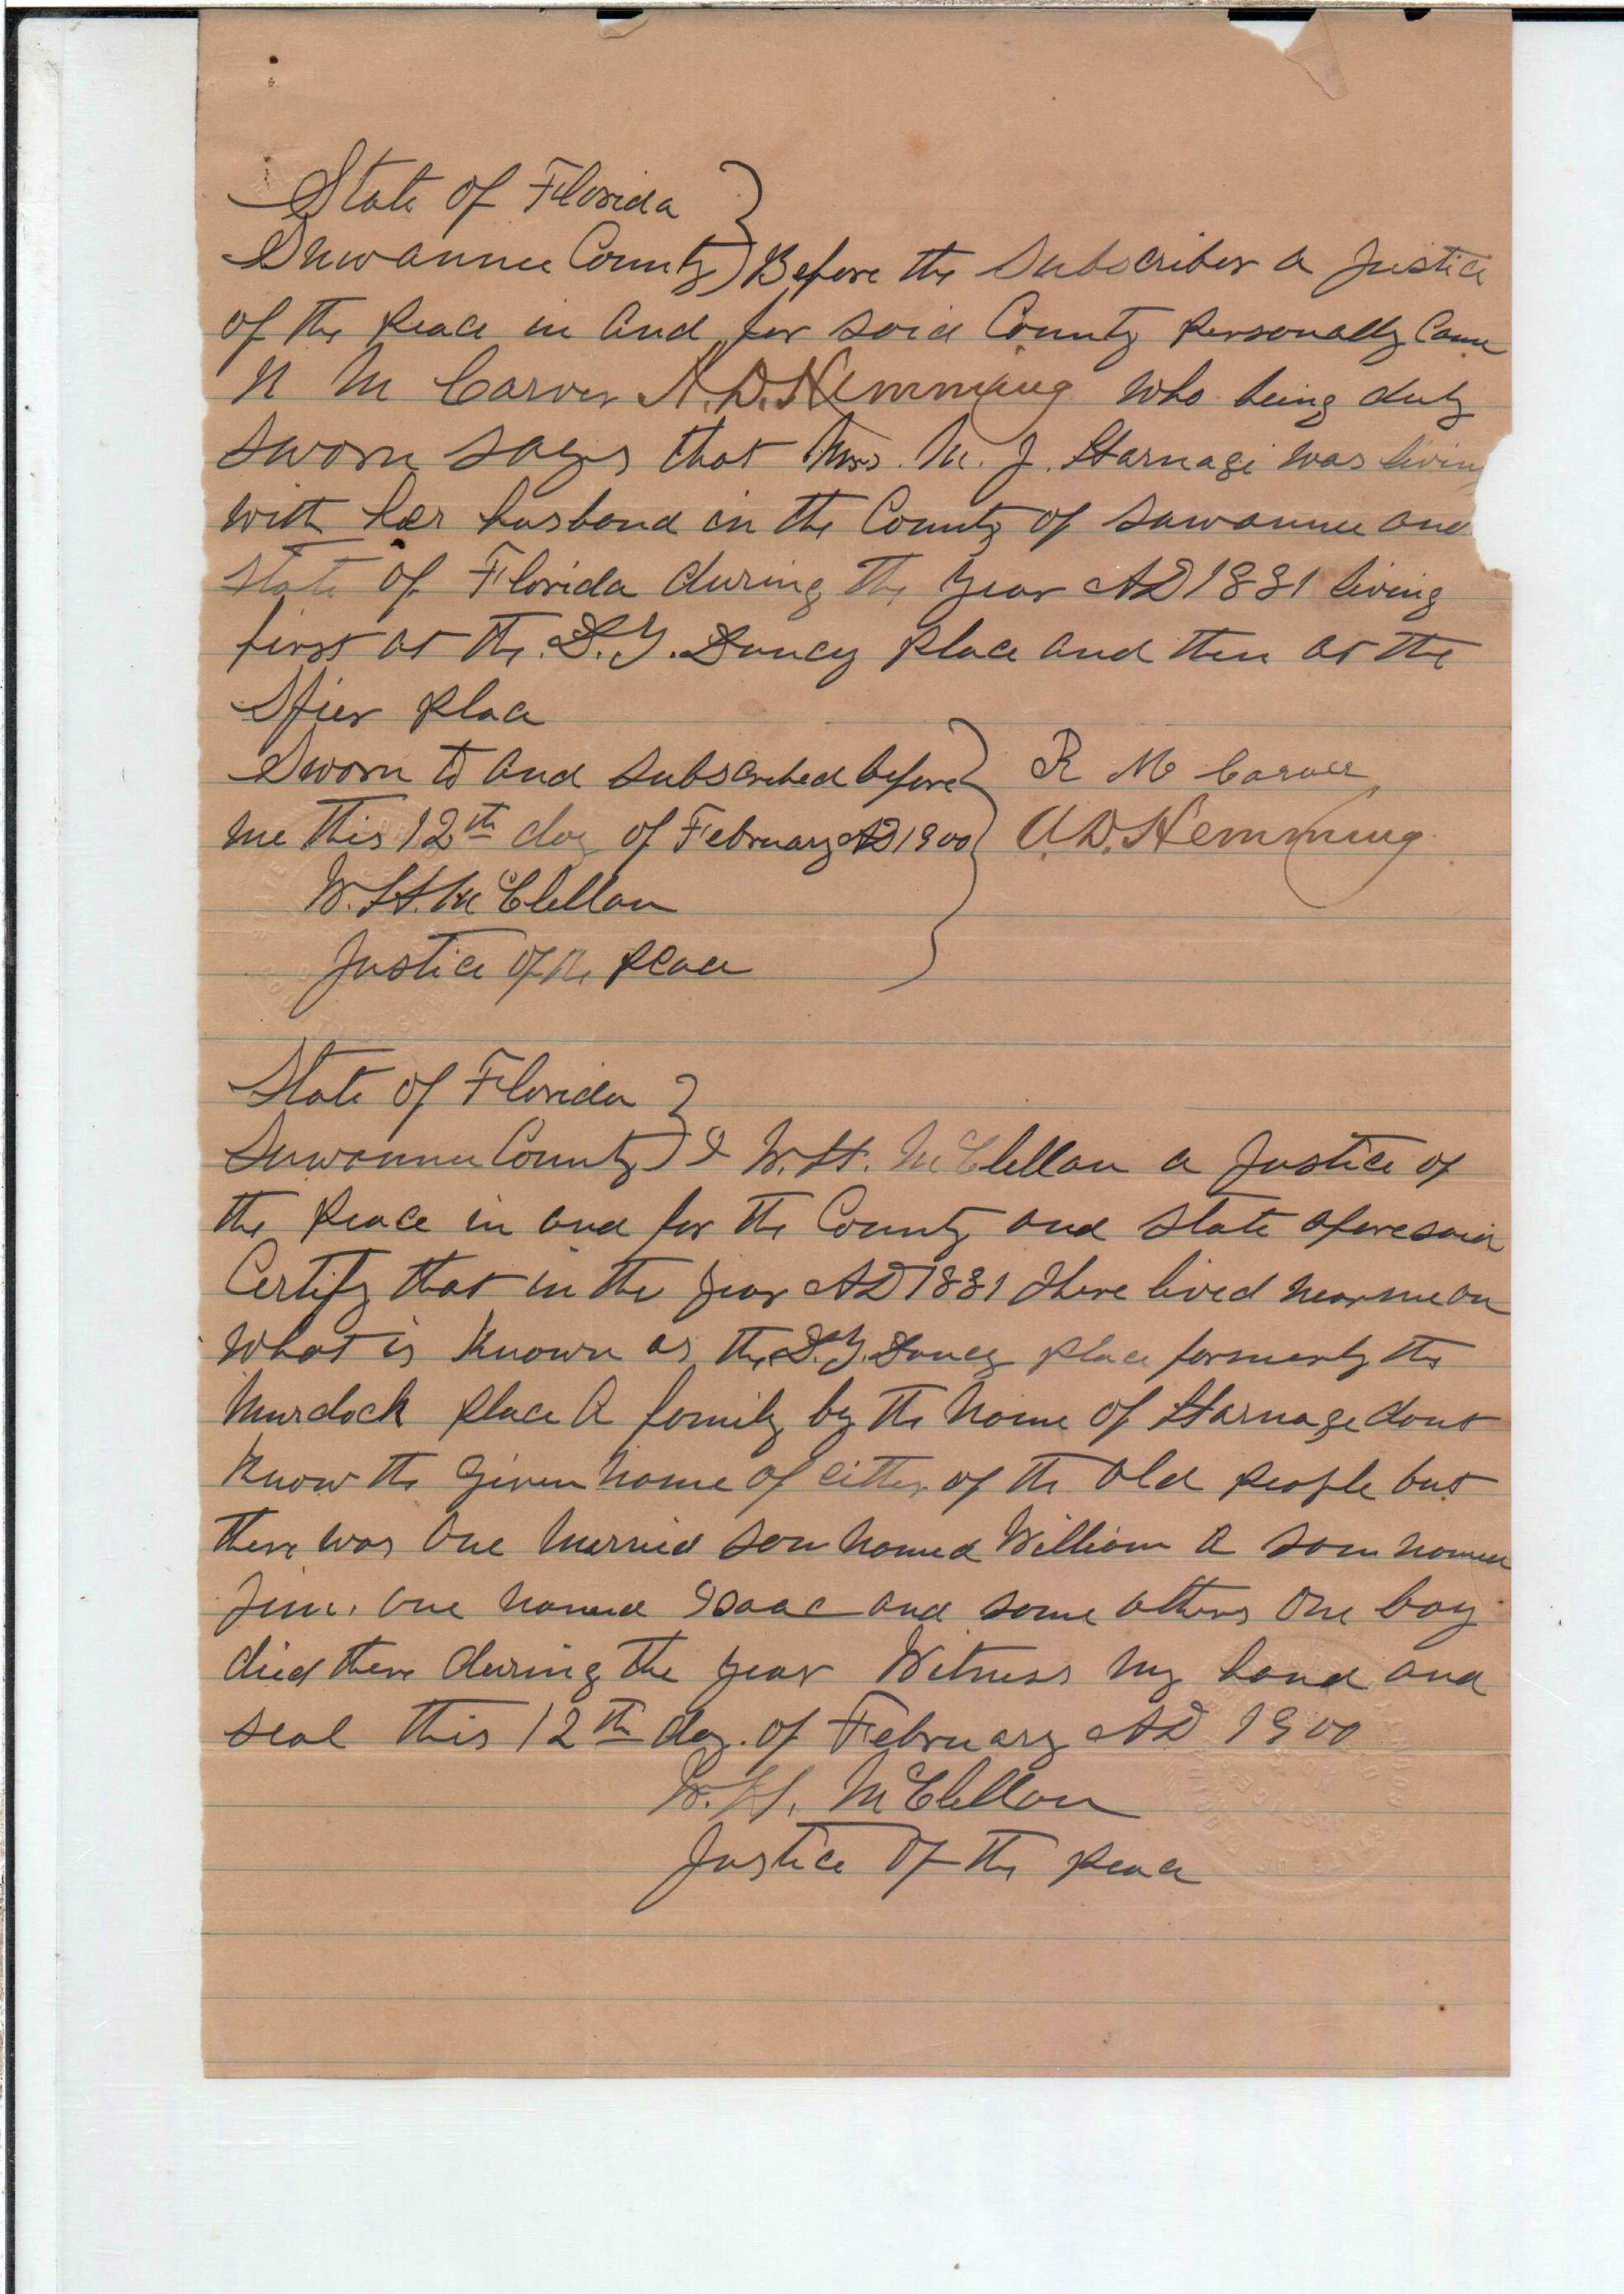 State of Florida }
Suwannee County ) Before the Subscriber a Justice
of the Peace in and for said County Personally Came
R M Carver A.D. Hemming who being duly
sworn says that Mrs. M. J. Harnage was livin
with her husband in the County of Suwannee and
State of Florida during the year AD 1881 living
first at the D.Y. Dancy Place and then at the
Spier Place
Sworn to and subscribed before } R M Carver
me this 12th day of February AD 1900 A.D. Hemming
W. H. McClellan
Justice of the Peace
State of Florida }
Suwannee County ) I W. H. McClellan a Justice of
the Peace in and for the County and State aforesaid
Certify that in the year AD 1881 there lived near me on
what is Known as the D.Y. Dancy place formerly the
Murdock Place A family by the Name of Harnage dont
Know the given name of either of the old people but
there was one Married son named William a son named
Jim. one named Isaac and some others One boy
died there during the year Witness my hand and
seal this 12th day. of February AD 1900
W. H. McClellan
Justice of the Peace